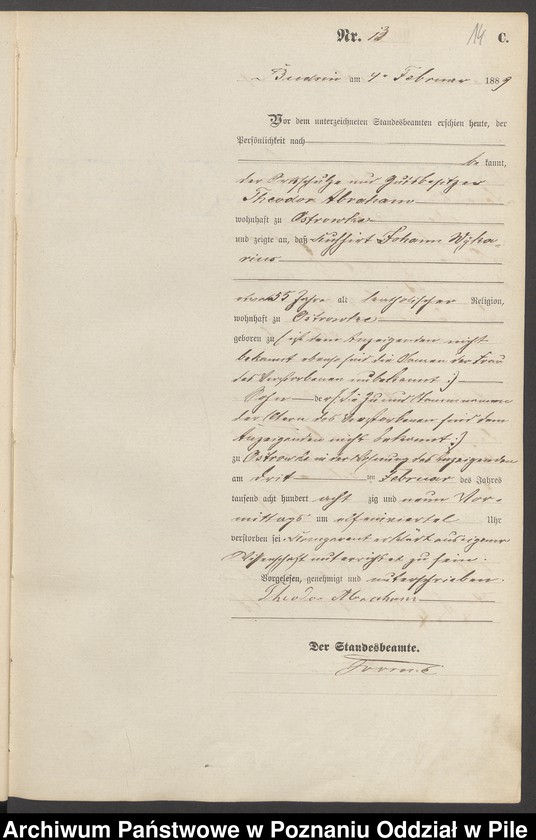 Nr. 13 14 C.
am 4ten Februar 1889
Vor dem unterzeichneten Standesbeamten erschien heute, der
Persönlichkeit nach
be kannt,
der Ortsschulze und Gutsbesitzer
Theodor Abraham
wohnhaft zu Ostrowke
und zeigte an, daß Kuhhirt Johann Wyka-
rius
etwa 55 Jahre alt katholischer Religion,
wohnhaft zu Ostrowke
geboren zu (: ist dem Anzeigenden nicht
bekannt ebenso sind die Namen der Frau
des Verstorbenen unbekannt :)
Sohn der (: die Zu und Stammnamen
der Eltern des Verstorbenen sind dem
Anzeigenden nicht bekannt :)
zu Ostrowke in der Wohnung des Anzeigenden
am drit ten Februar des Jahres
tausend acht hundert acht zig und neun Vor-
mittags um elfeinviertel Uhr
verstorben sei erklärt aus eigener
Wissenschaft unterrichtet zu sein.
Vorgelesen, genehmigt und unterschrieben.
Theodor Abraham
Der Standesbeamte.
Archiwum Państwowe w Poznaniu Oddział w Pile